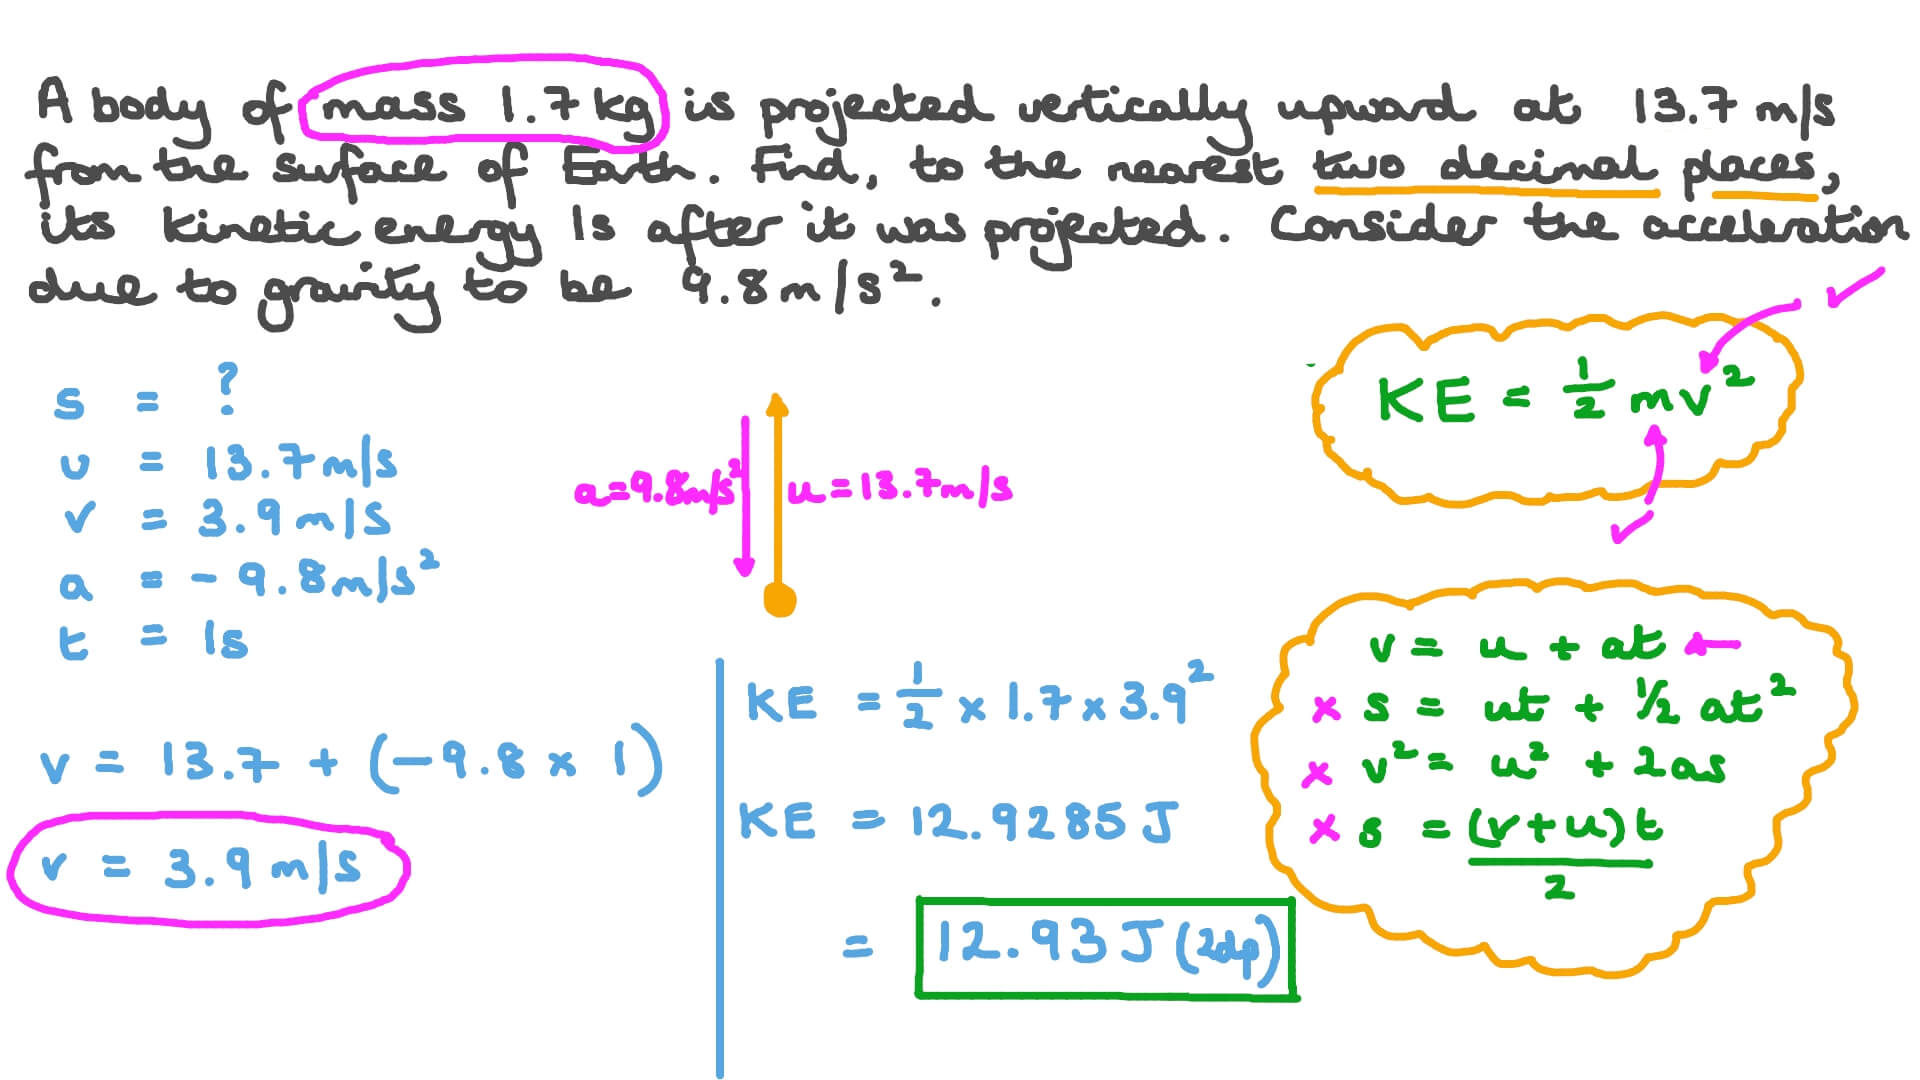 A body of mass 1.7 kg is projected vertically upward at 13.7 m/s
from the surface of Earth. Find, to the nearest two decimal places,
its kinetic energy 1s after it was projected. Consider the acceleration
due to gravity to be 9.8 m/s².
s = ?
u = 13.7 m/s
v = 3.9 m/s
a = - 9.8 m/s²
t = 1s
v = 13.7 + (-9.8 × 1)
v = 3.9 m/s
a=9.8m/s²
u=13.7m/s
KE = 1/2 mv²
KE = 1/2 × 1.7 × 3.9²
KE = 12.9285 J
= 12.93 J (2dp)
v = u + at ←
× s = ut + ½ at²
× v² = u² + 2as
× s = (v+u)t
2